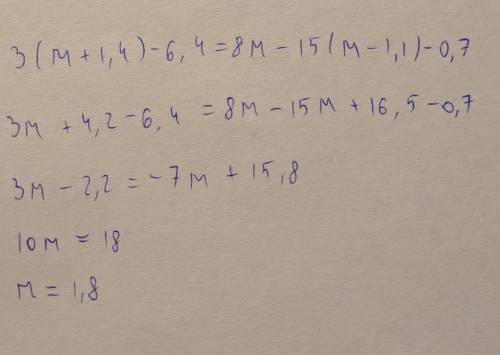 3(м+1,4)-6,4=8м-15(м-1,1)-0,7
3м+4,2-6,4=8м-15м+16,5-0,7
3м-2,2=-7м+15,8
10м=18
м=1,8